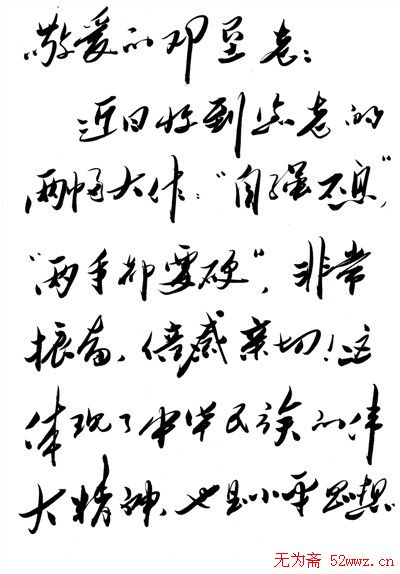 敬爱的邓垦老：
近日收到您老的
两幅大作：“自强不息”，
“两手都要硬”，非常
振奋，倍感亲切！这
体现了中华民族的伟
大精神，也是小平思想
无为斋 52wwz.cn